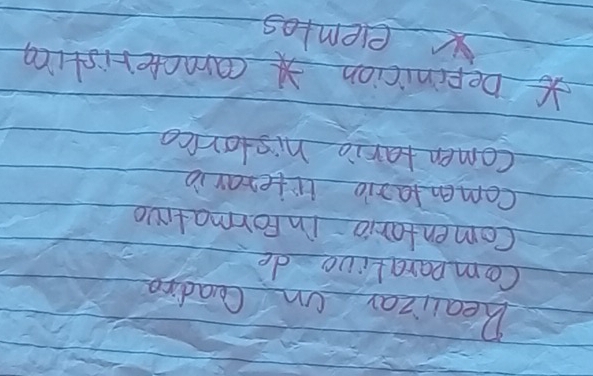 Realizar un Cuadro
Comparativo de
Comentario informativo
Comentario literario
Comentario historico
* Definicion * caracteristica
* elemtos